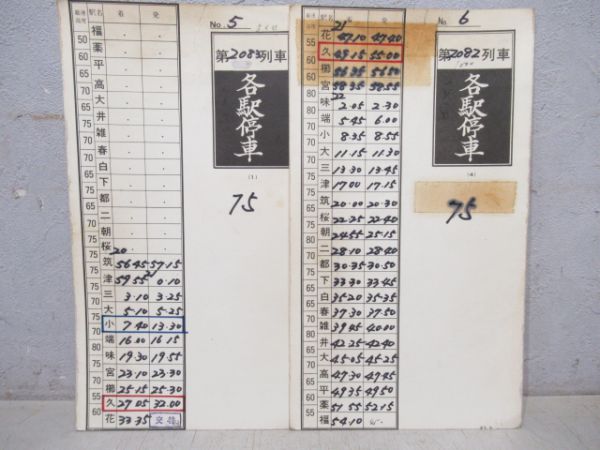 No. 5
最高速度 駅名 着 発
50 福
60 薬
60 平
高
65 大
70 井
雑
65 春
70 白
75 下
都
二
朝
75 桜
20
筑 56·45 57·15
75 津 59·55 0·10
三 3·10 3·25
75 大 5·10 5·25
小 7·40 13·30
70 端 16·00 16·15
味 19·30 19·55
宮 23·10 23·30
櫛 25·15 25·30
60 久 27·05 32·00
花 33·35
第2083列車
各駅停車
(1)
75
No. 6
最高速度 駅名 着 発
21
55 花 47·10 47·40
60 久 49·15 55·00
櫛 56·35 56·50
宮 58·35 58·55
22
味 2·05 2·30
端 5·45 6·00
小 8·35 8·55
大 11·15 11·30
三 13·30 13·45
津 17·00 17·15
筑 20·00 20·30
桜 22·25 22·40
朝 24·55 25·15
二 28·10 28·40
都 30·35 30·50
下 33·30 33·45
白 35·20 35·35
春 37·30 37·50
雑 39·45 40·00
井 42·25 42·40
大 45·05 45·25
高 47·30 47·45
平 49·35 49·50
薬 51·55 52·15
55 福 54·10
第2082列車
各駅停車
(4)
75